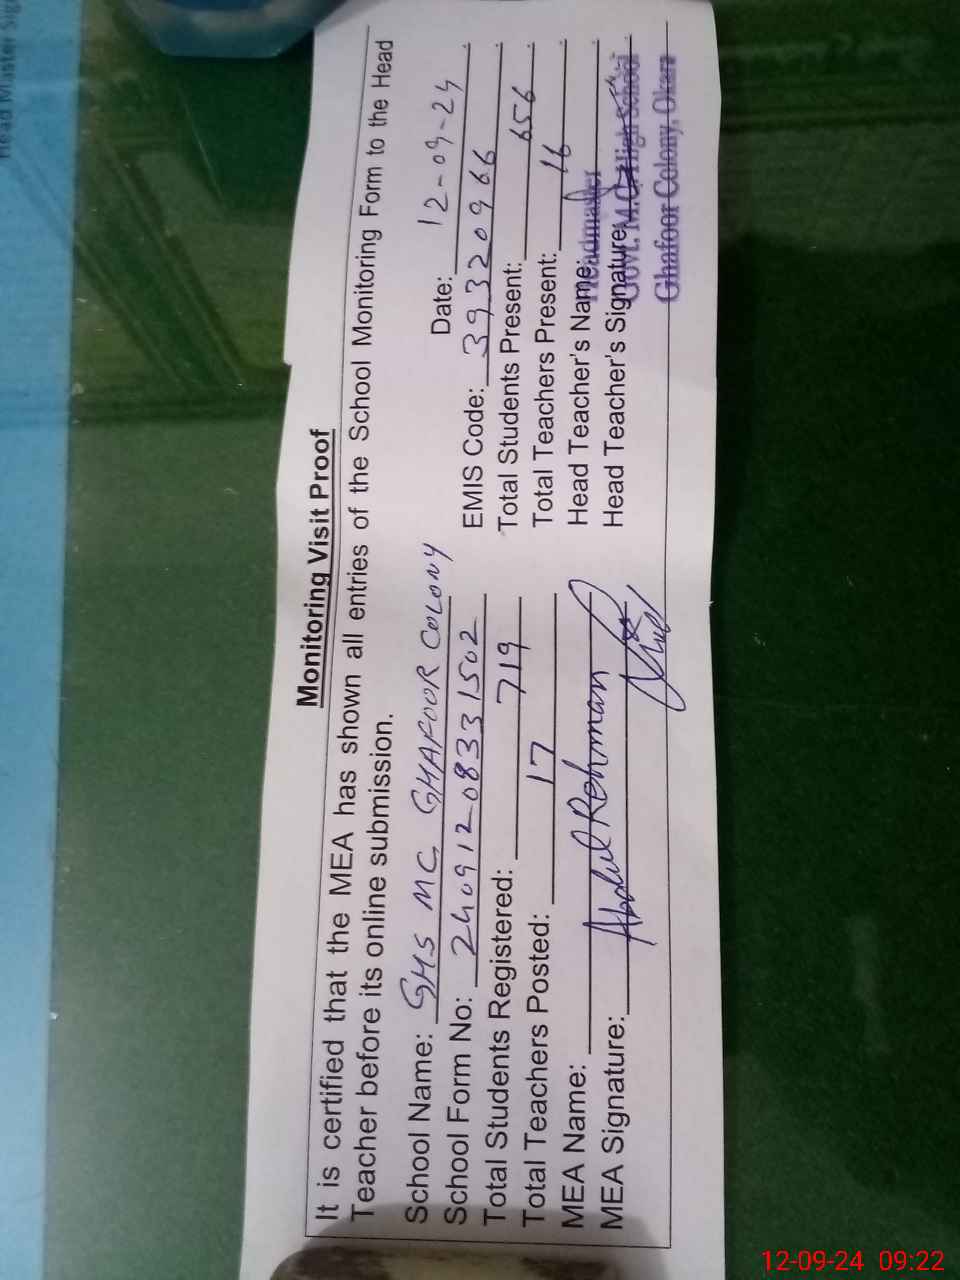 Head Master Sig
Monitoring Visit Proof
It is certified that the MEA has shown all entries of the School Monitoring Form to the Head
Teacher before its online submission.
School Name: GHS MC GHAFOOR COLONY Date: 12-09-24
School Form No: 24091208331502 EMIS Code: 39320966
Total Students Registered: 719 Total Students Present: 656
Total Teachers Posted: 17 Total Teachers Present: 16
MEA Name: Abdul Rehman Head Teacher's Name:
MEA Signature: Head Teacher's Signature:
Headmaster
Govt. M.C. High School
Ghafoor Colony, Okara
12-09-24 09:22